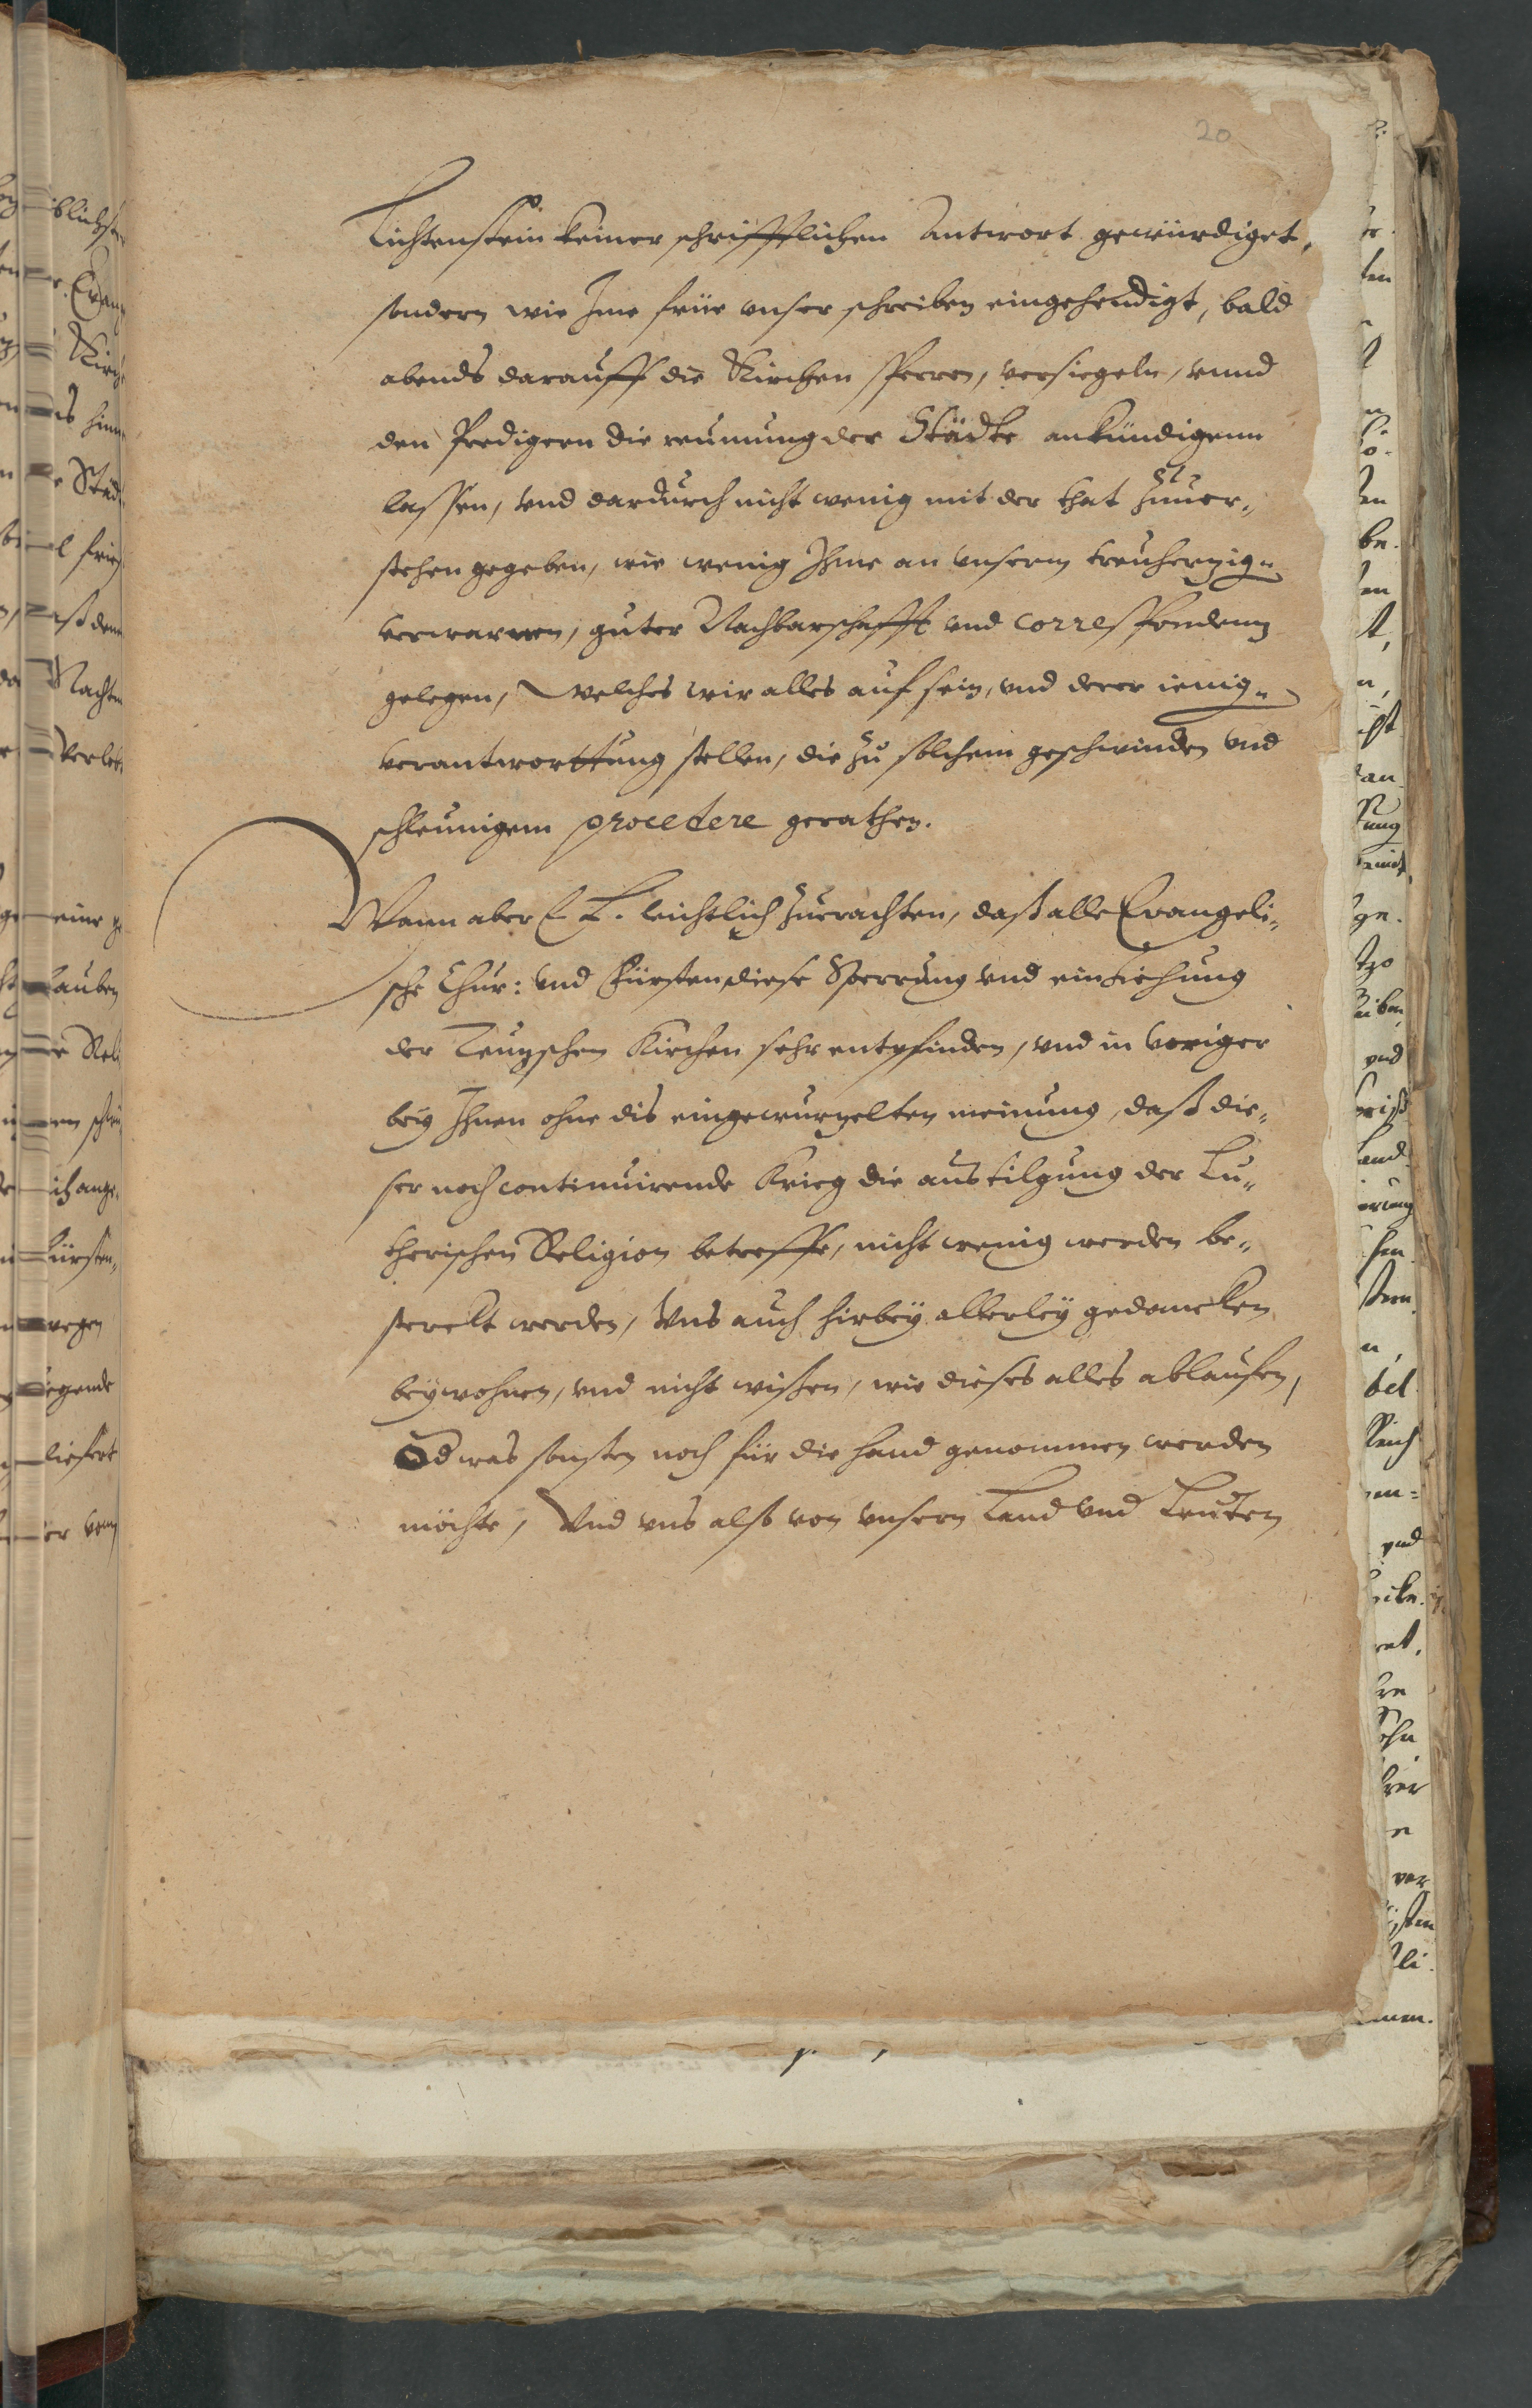 20
Lichtenstein keiner schrifftlichen Antwort gewürdiget,
sondern wie Ime früe vnser schreiben eingehendigt, bald
abends darauff die Kirchen sperren, versiegeln, vnnd
den Predigern die reumung der Städte ankündigenn
lassen, vnd dardurch nicht wenig mit der that zuuer„
stehen gegeben, wie wenig Ihme an vnserm treuherzig„
verwarnen, guter Nachbarschafft vnd correspondenz
gelegen, welches wir alles auf sein, vnd derer ienig„
verantworttung stellen, die zu solchem geschwinden vnd
schleunigem procedere gerathen.
Wann aber E L. leichtlich zuerachten, daß alle Evangeli„
sche Chur: vnd Fürsten diese Sperrung vnd einziehung
der Teuzschen Kirchen sehr entpfinden, vnd in voriger
beÿ Ihnen ohne dis eingewurzelten meinung, daß die„
ser noch continuirende Krieg die austilgung der Lu„
therischen Religion betreffe, nicht wenig werden be„
sterckt werden, Vns auch hirbeÿ allerleÿ gedancken
beÿwohnen, vnd nicht wißen, wie dieses alles ablaufen,
Od was sonsten noch für die hand genommen werden
möchte, Vnd vns alß von vnsern Land vnd Leuten